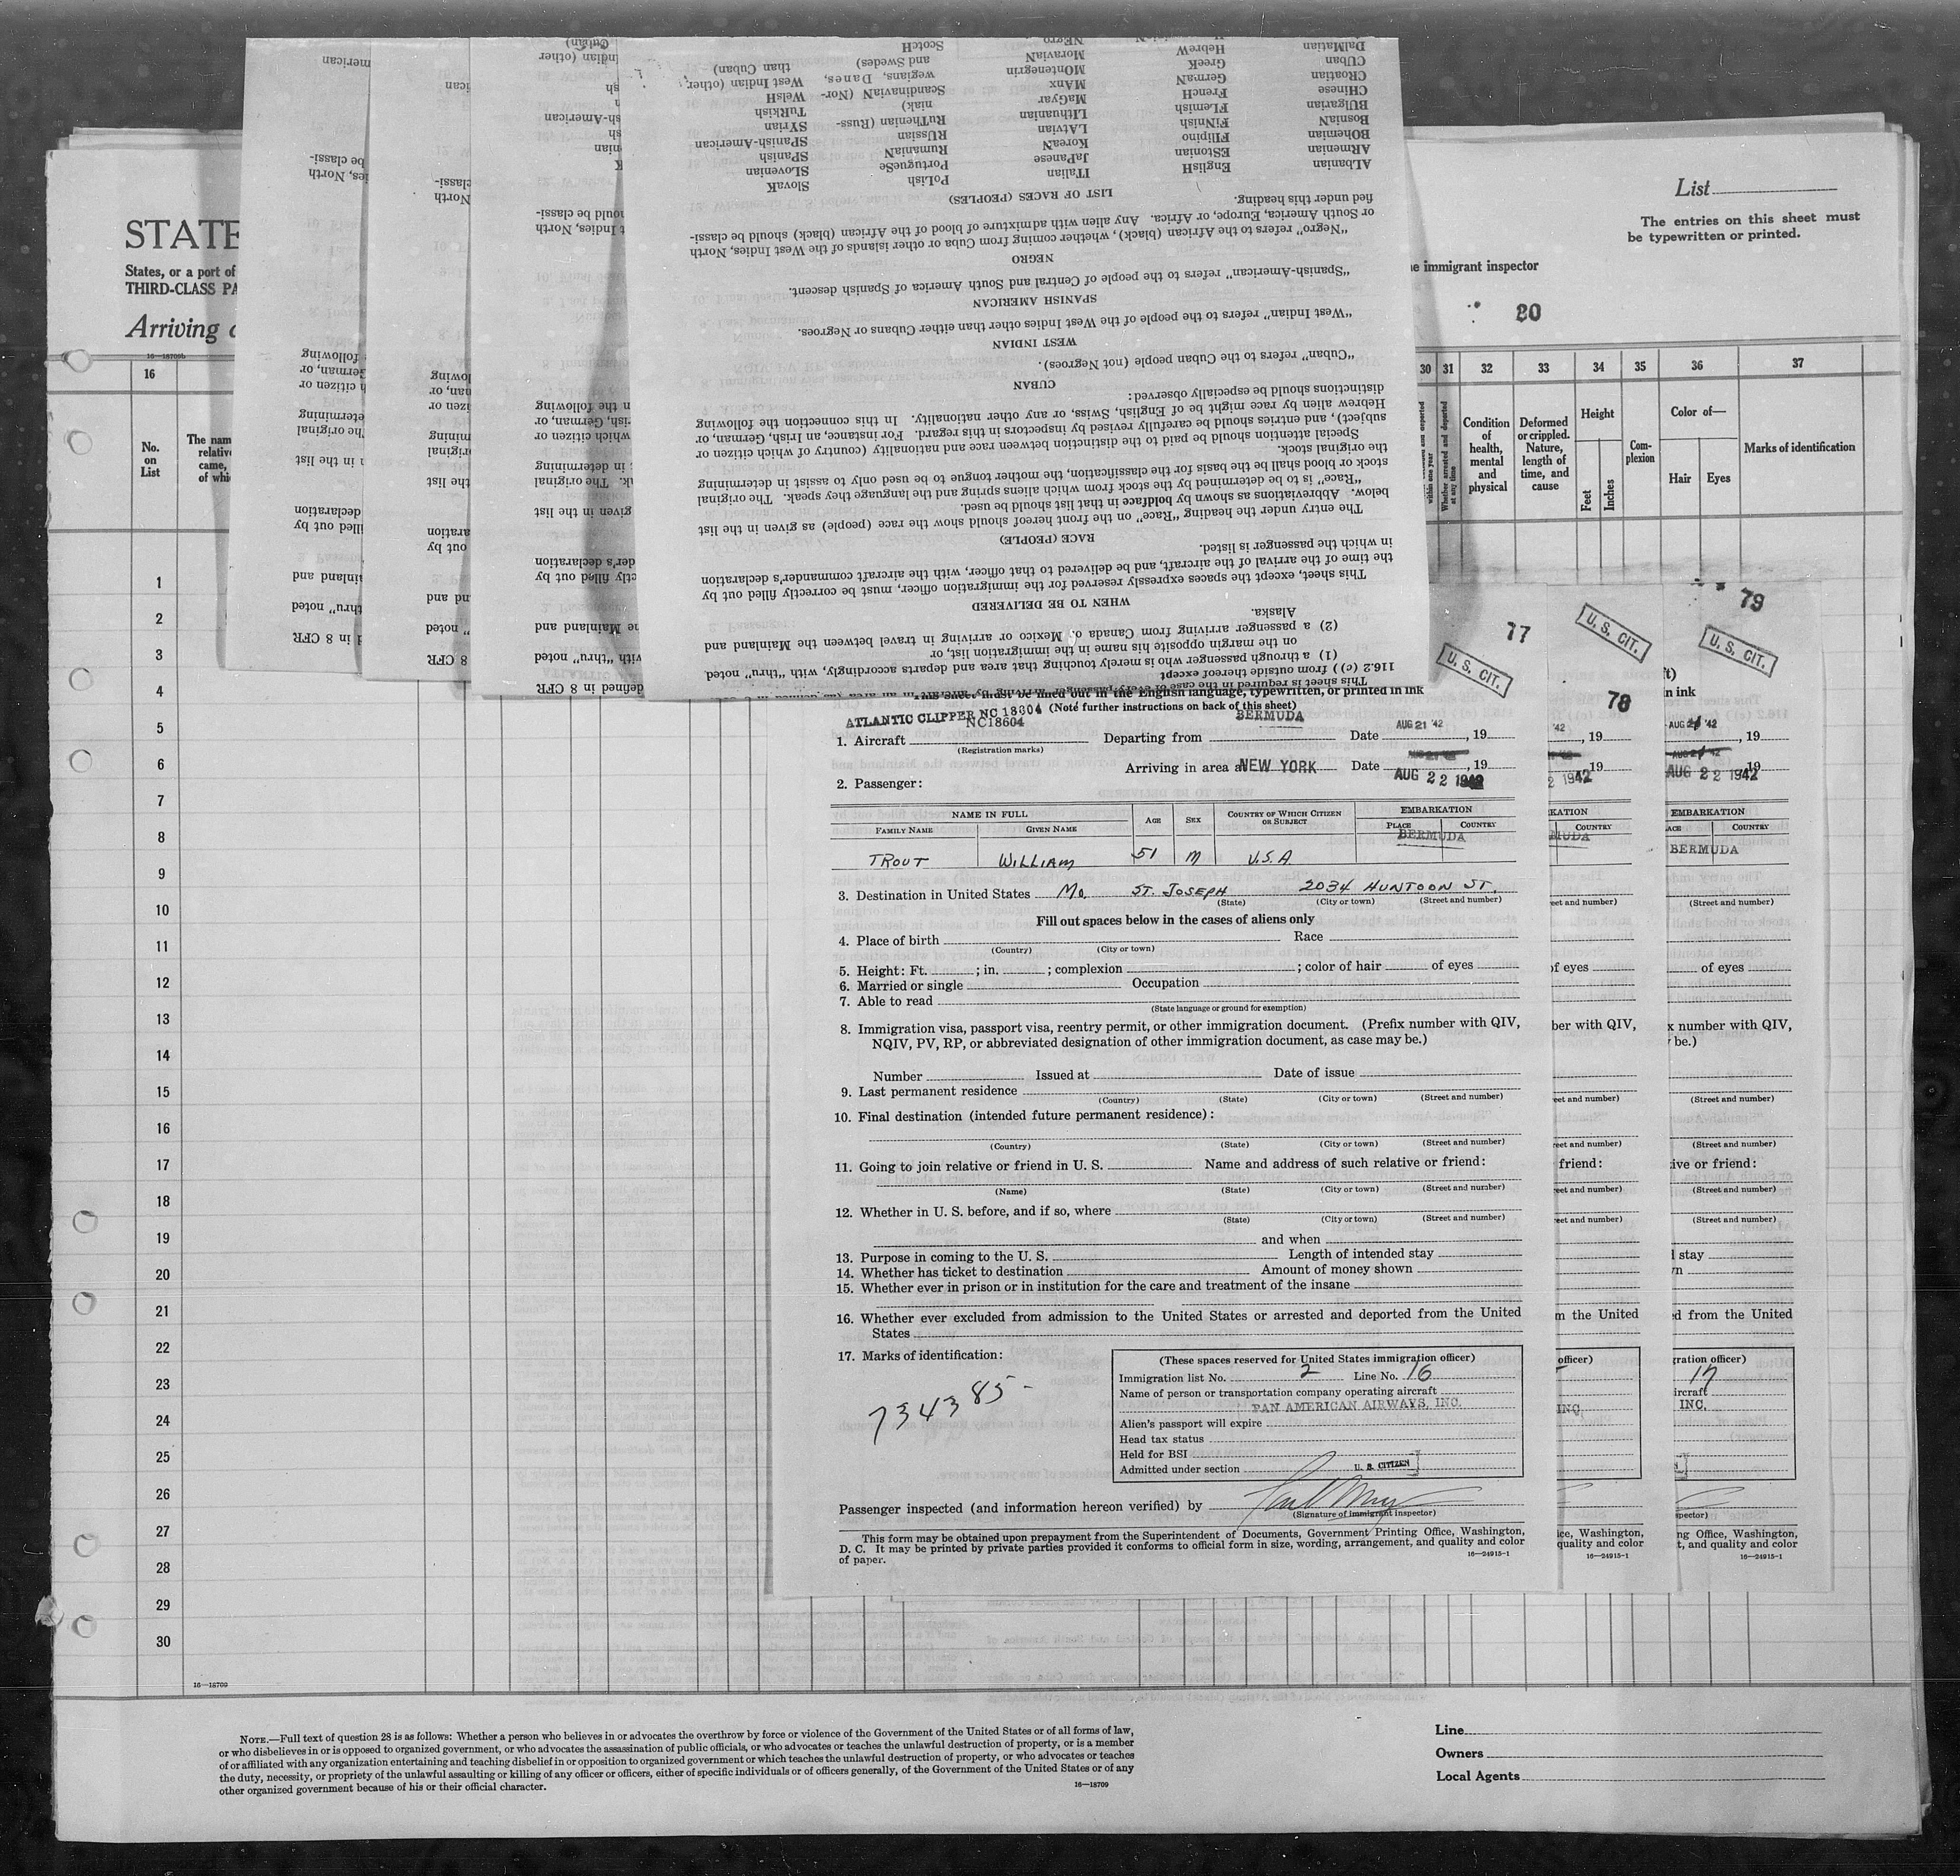 List
The entries on this sheet must
be typewritten or printed.
STATE
States, or a port of
THIRD-CLASS PA
Arriving
immigrant inspector
20
16—18709b
16
No.
on
List
The nam
relativ
came,
of whi
30 31 32 33 34 35 36 37
within one year
Whether arrested and deported
at any time
Condition
of
health,
mental
and
physical
Deformed
or crippled.
Nature,
length of
time, and
cause
Height
Feet
Inches
Com-
plexion
Color of—
Hair
Eyes
Marks of identification
This sheet is required in the case of every passenger arriving by aircraft in an area
116.2 (c)) from outside thereof except
(1) a through passenger who is merely touching that area and departs accordingly, with "thru" noted
on the margin opposite his name in the immigration list, or
(2) a passenger arriving from Canada or Mexico or arriving in travel between the Mainland and
Alaska.
WHEN TO BE DELIVERED
This sheet, except the spaces expressly reserved for the immigration officer, must be correctly filled out by
the time of the arrival of the aircraft, and be delivered to that officer, with the aircraft commander's declaration
in which the passenger is listed.
RACE (PEOPLE)
The entry under the heading "Race" on the front hereof should show the race (people) as given in the list
below. Abbreviations as shown by boldface in that list should be used.
"Race" is to be determined by the stock from which aliens spring and the language they speak. The original
stock or blood shall be the basis for the classification, the mother tongue to be used only to assist in determining
the original stock.
Special attention should be paid to the distinction between race and nationality (country of which citizen or
subject), and entries should be carefully revised by inspectors in this regard. For instance, an Irish, German, or
Hebrew alien by race might be of English, Swiss, or any other nationality. In this connection the following
distinctions should be especially observed:
CUBAN
"Cuban" refers to the Cuban people (not Negroes).
WEST INDIAN
"West Indian" refers to the people of the West Indies other than either Cubans or Negroes.
SPANISH AMERICAN
"Spanish-American" refers to the people of Central and South America of Spanish descent.
NEGRO
"Negro" refers to the African (black), whether coming from Cuba or other islands of the West Indies, North
or South America, Europe, or Africa. Any alien with admixture of blood of the African (black) should be classi-
fied under this heading.
LIST OF RACES (PEOPLES)
ALbanian EnglisH ITalian PoLish SlovaK
ARmenian EStonian JaPanese PortugueSe SLovenian
BOhemian FIlipino KoreaN RumaniaN SPanish
BosniaN FiNnisH LAtvian RUssian SPanish-American
BUlgarian FLemish LIthuanian RuThenian (Russ- SYrian
CHinese FrencH MaGyar niak) TuRkish
CRoatian GermaN MAnx ScandinaviaN (Nor- WelsH
CUban GreeK MOntenegrin wegians, Danes, West Indian (other,
DalMatian HebreW MoraviaN and Swedes) than Cuban)
NEgro ScotcH
77
78
79
U. S. CIT.
U. S. CIT.
U. S. CIT.
must be filled out in the English language, typewritten, or printed in ink
(Note further instructions on back of this sheet)
ATLANTIC CLIPPER NC 18604
NC18604
BERMUDA
AUG 21 '42
1. Aircraft Departing from Date , 19
(Registration marks)
AUG 21 '42
Arriving in area at NEW YORK Date , 19
AUG 22 1942
2. Passenger:
NAME IN FULL
FAMILY NAME
GIVEN NAME
AGE
SEX
COUNTRY OF WHICH CITIZEN
OR SUBJECT
EMBARKATION
PLACE
COUNTRY
BERMUDA
TROUT WILLIAM 51 M U.S.A
3. Destination in United States Mo. ST. JOSEPH 2034 HUNTOON ST.
(State) (City or town) (Street and number)
Fill out spaces below in the cases of aliens only
4. Place of birth Race
(Country) (City or town)
5. Height: Ft. ; in. ; complexion ; color of hair of eyes
6. Married or single Occupation
7. Able to read
(State language or ground for exemption)
8. Immigration visa, passport visa, reentry permit, or other immigration document. (Prefix number with QIV,
NQIV, PV, RP, or abbreviated designation of other immigration document, as case may be.)
Number Issued at Date of issue
9. Last permanent residence
(Country) (State) (City or town) (Street and number)
10. Final destination (intended future permanent residence):
(Country) (State) (City or town) (Street and number)
11. Going to join relative or friend in U. S. Name and address of such relative or friend:
(Name) (State) (City or town) (Street and number)
12. Whether in U. S. before, and if so, where
(State) (City or town) (Street and number)
and when
13. Purpose in coming to the U. S. Length of intended stay
14. Whether has ticket to destination Amount of money shown
15. Whether ever in prison or in institution for the care and treatment of the insane
16. Whether ever excluded from admission to the United States or arrested and deported from the United
States
17. Marks of identification:
734385-
(These spaces reserved for United States immigration officer)
Immigration list No. 2 Line No. 16
Name of person or transportation company operating aircraft
PAN AMERICAN AIRWAYS, INC.
Alien's passport will expire
Head tax status
Held for BSI
Admitted under section U. S. CITIZEN
Passenger inspected (and information hereon verified) by
(Signature of immigrant inspector)
This form may be obtained upon prepayment from the Superintendent of Documents, Government Printing Office, Washington,
D. C. It may be printed by private parties provided it conforms to official form in size, wording, arrangement, and quality and color
of paper.
16—24915-1
1
2
3
4
5
6
7
8
9
10
11
12
13
14
15
16
17
18
19
20
21
22
23
24
25
26
27
28
29
30
16—18709
NOTE.—Full text of question 28 is as follows: Whether a person who believes in or advocates the overthrow by force or violence of the Government of the United States or of all forms of law,
or who disbelieves in or is opposed to organized government, or who advocates the assassination of public officials, or who advocates or teaches the unlawful destruction of property, or is a member
of or affiliated with any organization entertaining and teaching disbelief in or opposition to organized government or which teaches the unlawful destruction of property, or who advocates or teaches
the duty, necessity, or propriety of the unlawful assaulting or killing of any officer or officers, either of specific individuals or of officers generally, of the Government of the United States or of any
other organized government because of his or their official character.
16—18709
Line
Owners
Local Agents